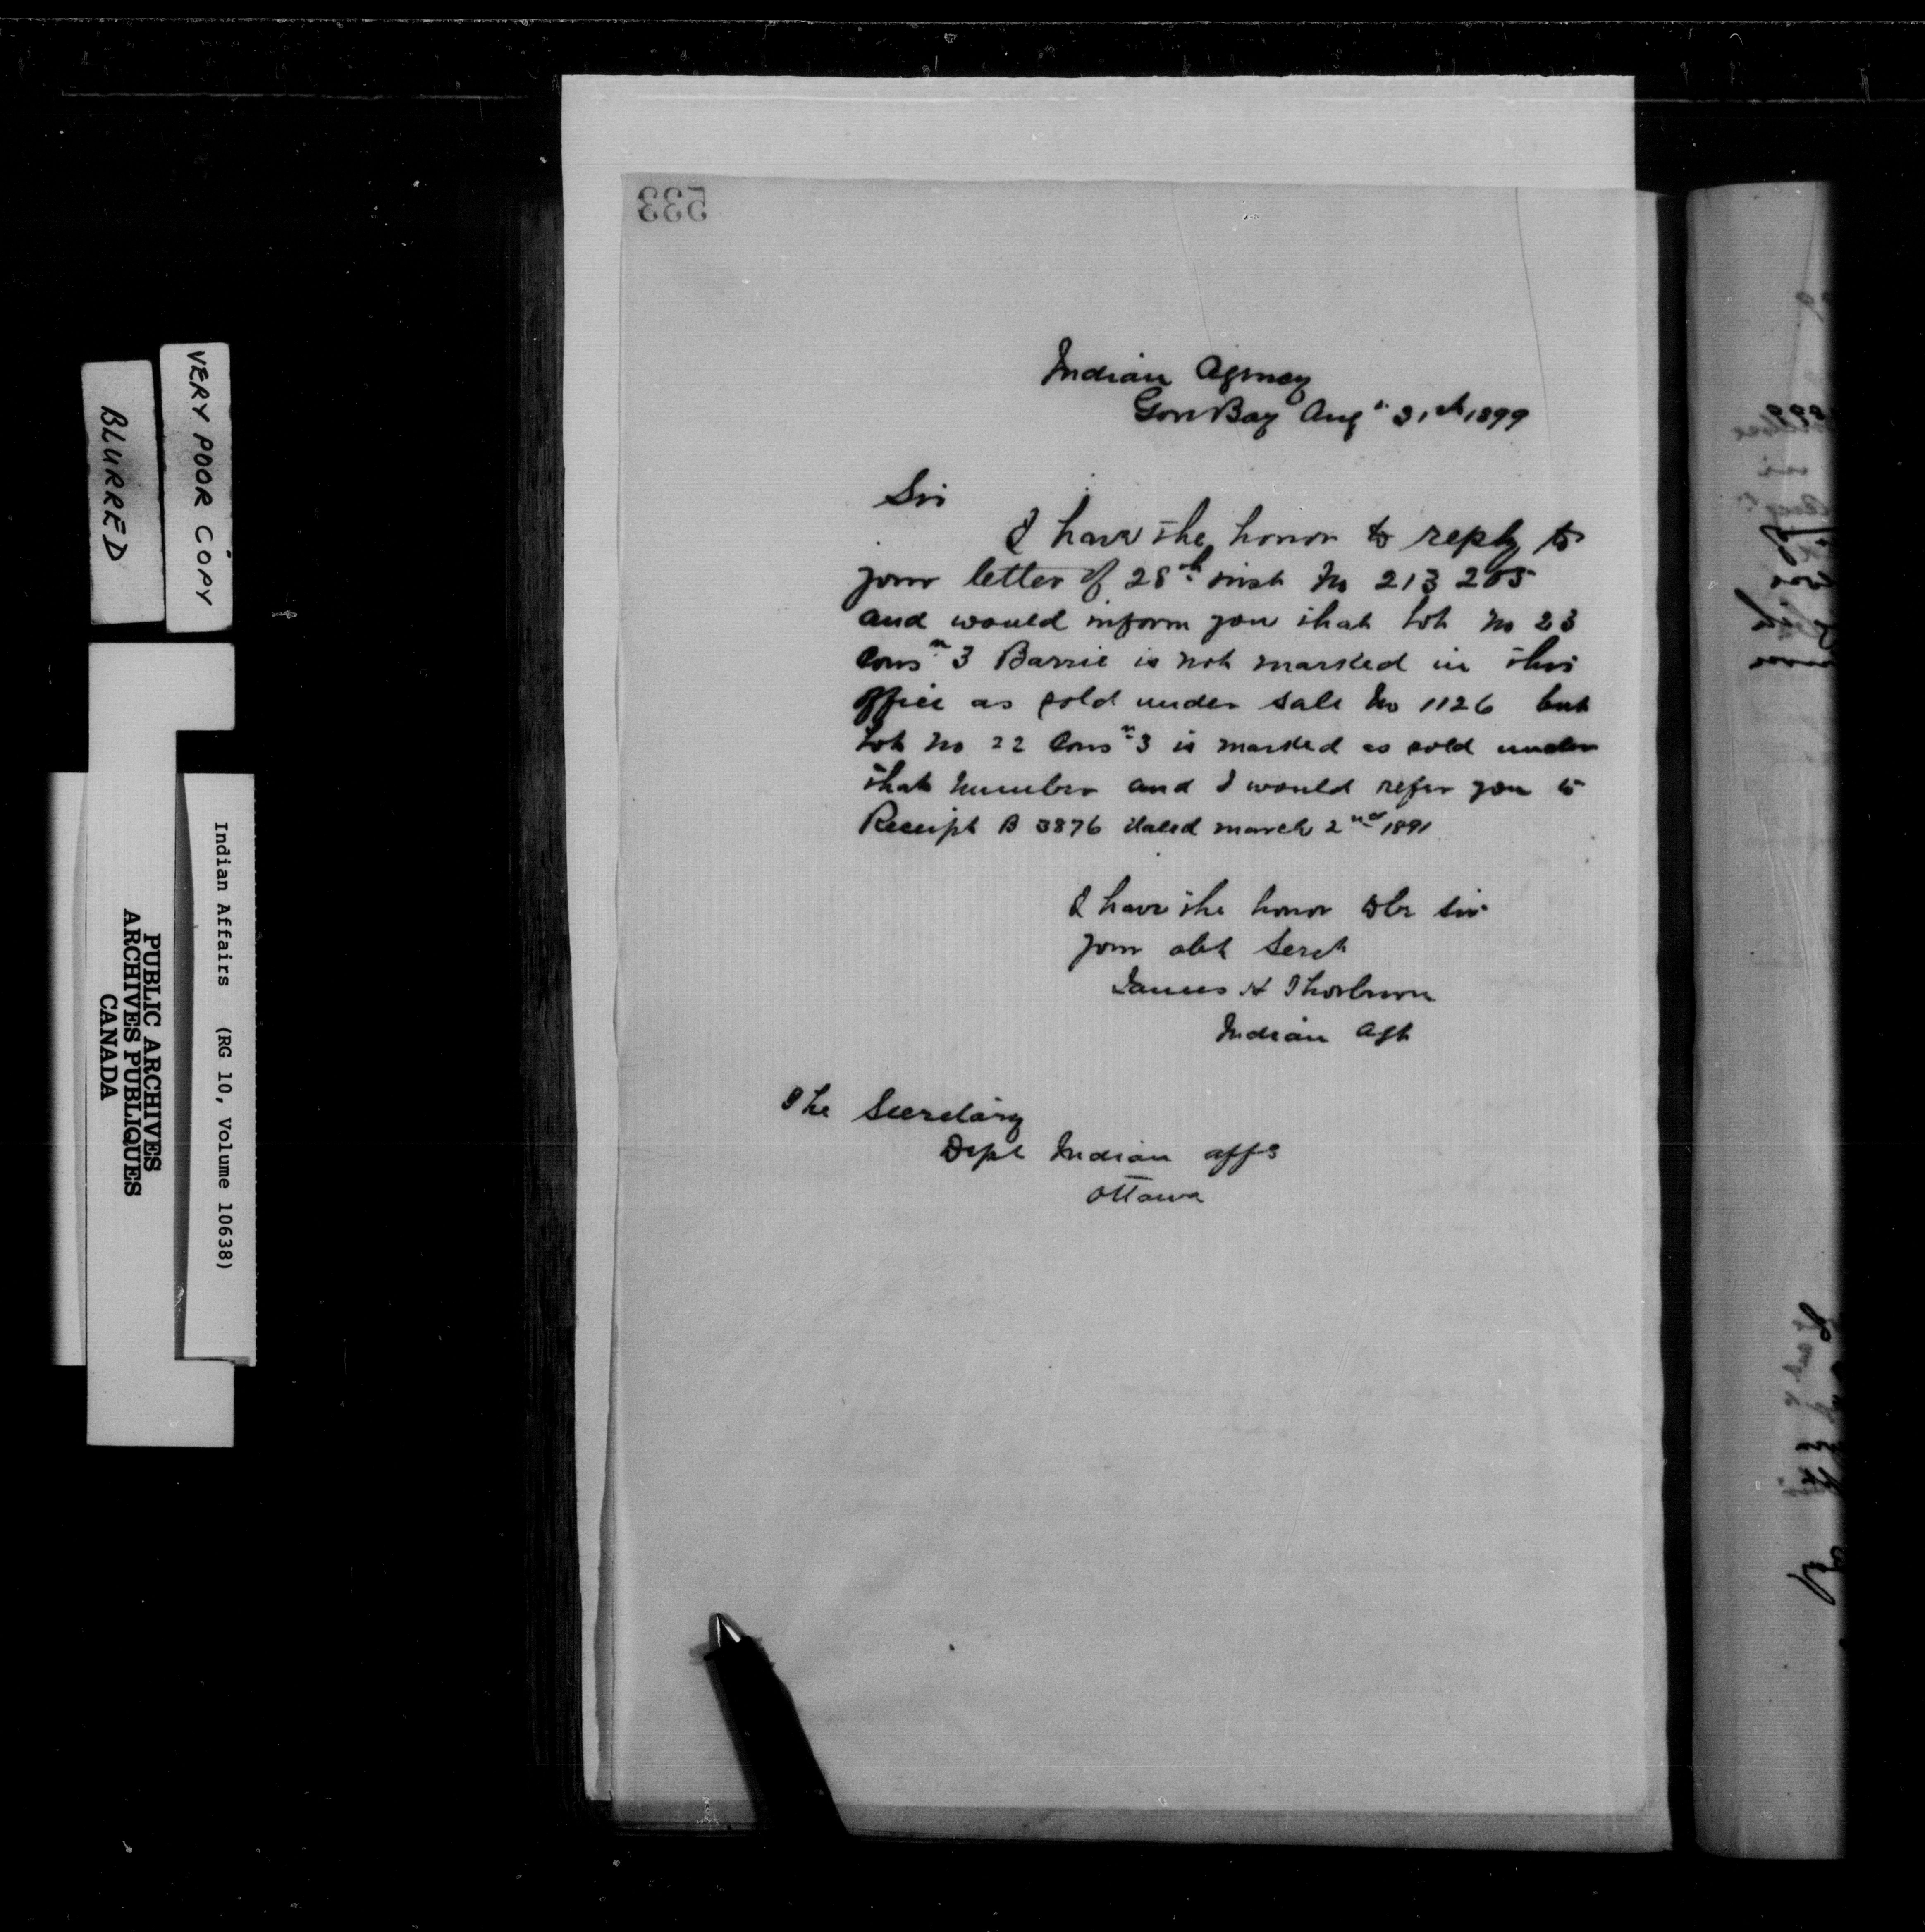 533
Indian Agency
Gore Bay Augt 31st 1899
Sir
I have the honor to reply to
your letter of 28th inst No 213 205
and would inform you that Lot No 23
Consn 3 Barrie is not marked in this
office as sold under sale No 1126 but
Lot No 22 Consn 3 is marked as sold under
that number and I would refer you to
Receipt B 3876 dated March 2nd 1891
I have the honor to be Sir
your obt Servt
James H Thorburn
Indian Agt
The Secretary
Dept Indian Affs
Ottawa
VERY POOR COPY
BLURRED
Indian Affairs (RG 10, Volume 10638)
PUBLIC ARCHIVES
ARCHIVES PUBLIQUES
CANADA